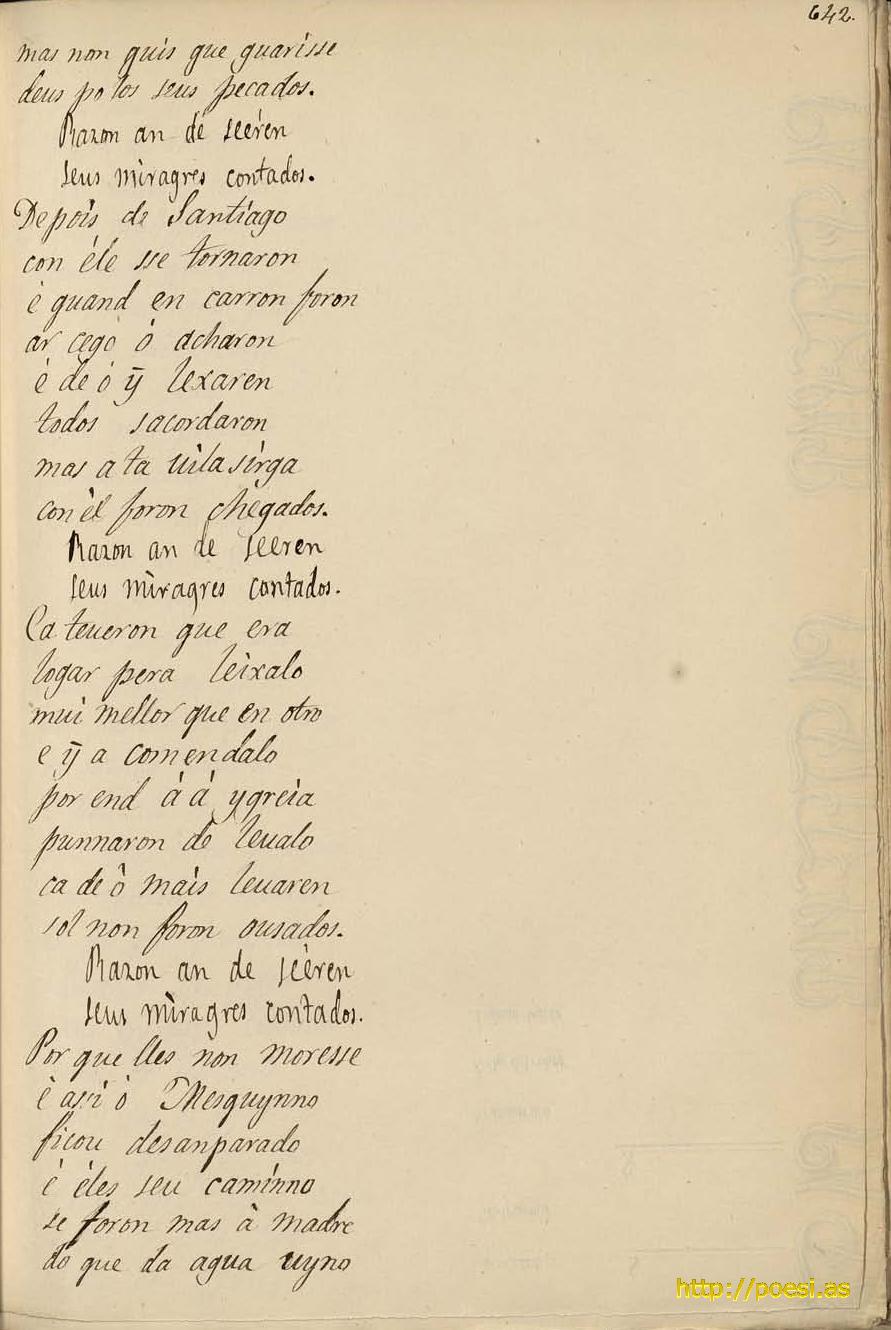 642.
mas non quis que guarisse
deus polos seus pecados.
Razon an de seeren
seus miragres contados.
Depois de Santiago
con éle sse tornaron
è quand en carron foron
ar cego ó acharon
é de ó ȳ lexaren
todos sacordaron
mas ata uila sirga
con èl foron chegados.
Razon an de seeren
seus mìragres contados.
Ca teueron que era
logar pera leixalo
mui mellor que en otro
e ȳ a comendalo
por end á á ygreia
punnaron de leualo
ca de ò mais leuaren
sol non foron ousados.
Razon an de sèeren
seus mìragres contados.
Por que lles non moresse
è assi ò Mesquynno
ficou desanparado
é éles seu camínno
se foron mas à madre
do que da agua uyno
http://poesi.as